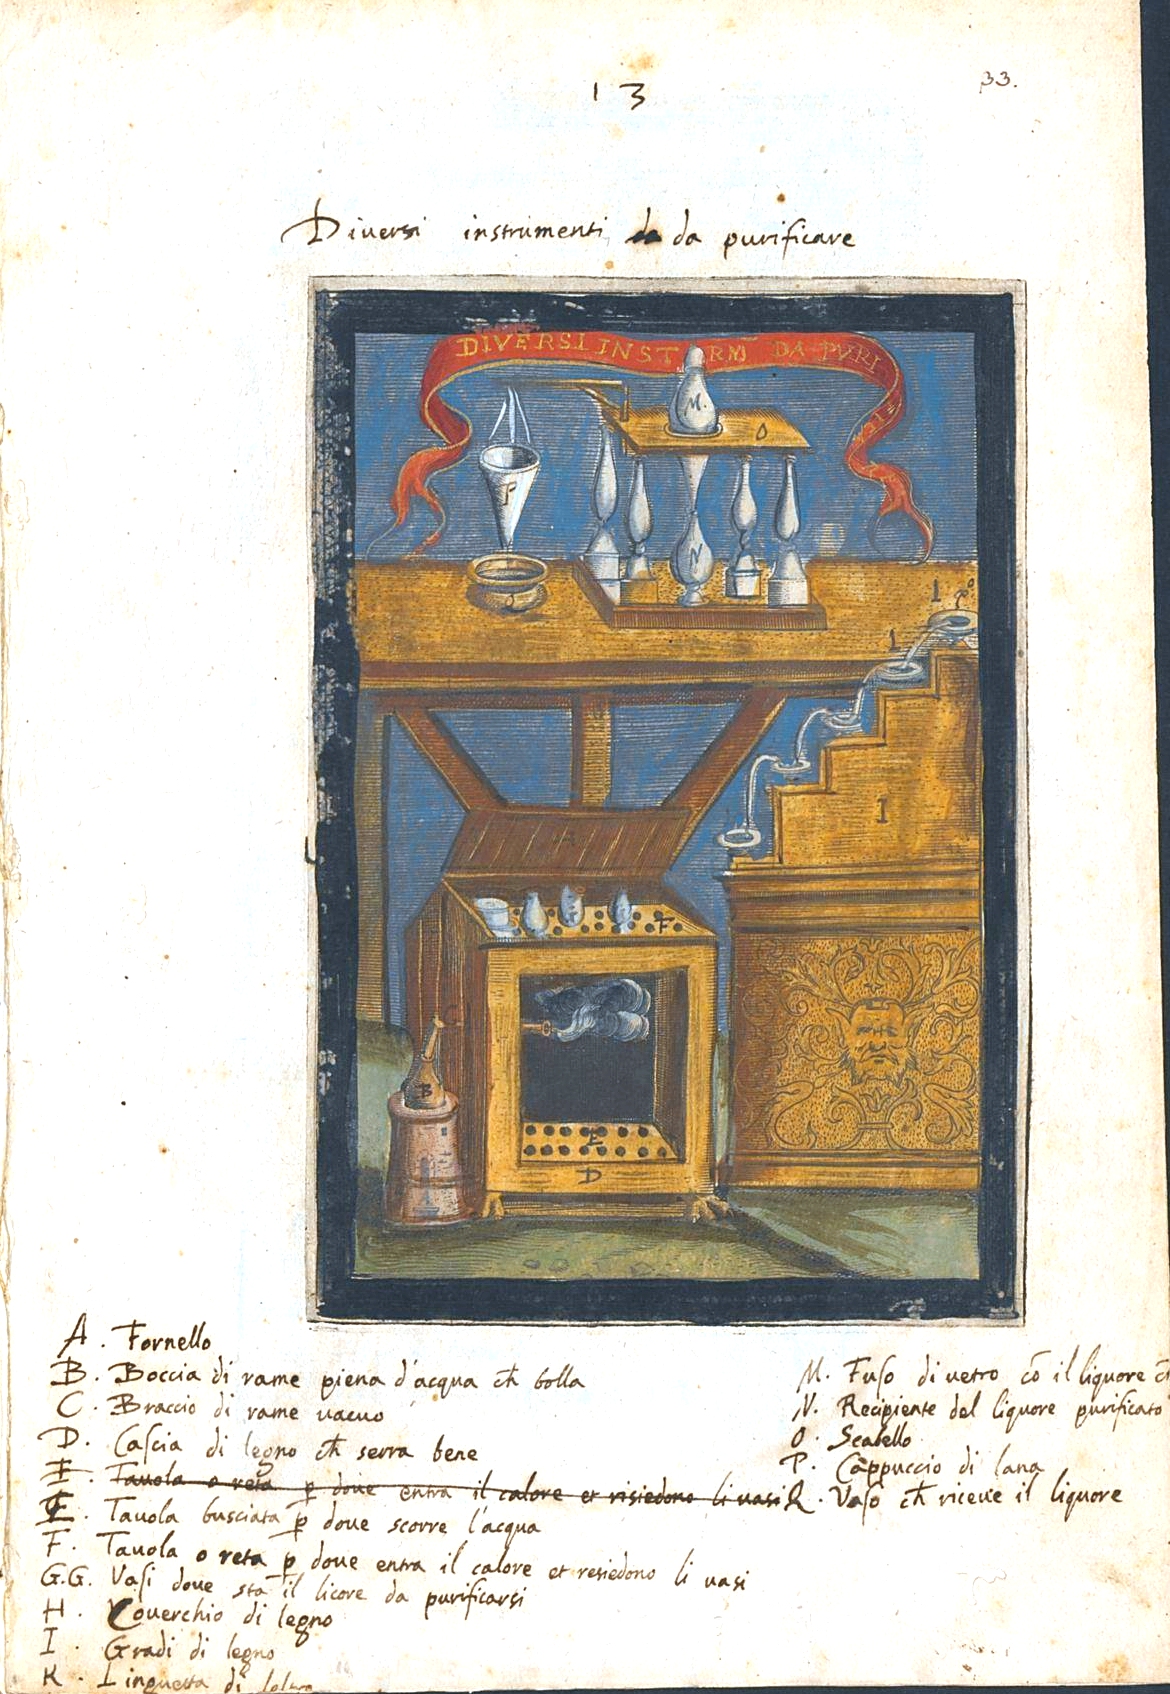 33.
13
Diversi instrumenti da da purificare
DIVERSI INST RM DA PURI
M.
O
P
N
1
1
I
F
C
B
E
D
A. Fornello
B. Boccia di rame piena d'acqua ch bolla
C. Braccio di rame vacuo
D. Cascia di legno ch serra bene
E. Tavola o reta p doue entra il calore et risiedono li uasi
E. Tauola busciata p doue scorre l'acqua
F. Tauola o reta p doue entra il calore et resiedono li uasi
G.G. Vasi doue sta il licore da purificarsi
H. Couerchio di legno
I. Gradi di legno
K. Linguetta di
M. Fuso di uetro cō il liquore
N. Recipiente del liquore purificato
O. Scabello
P. Cappuccio di lana
Q. Vaso ch riceue il liquore